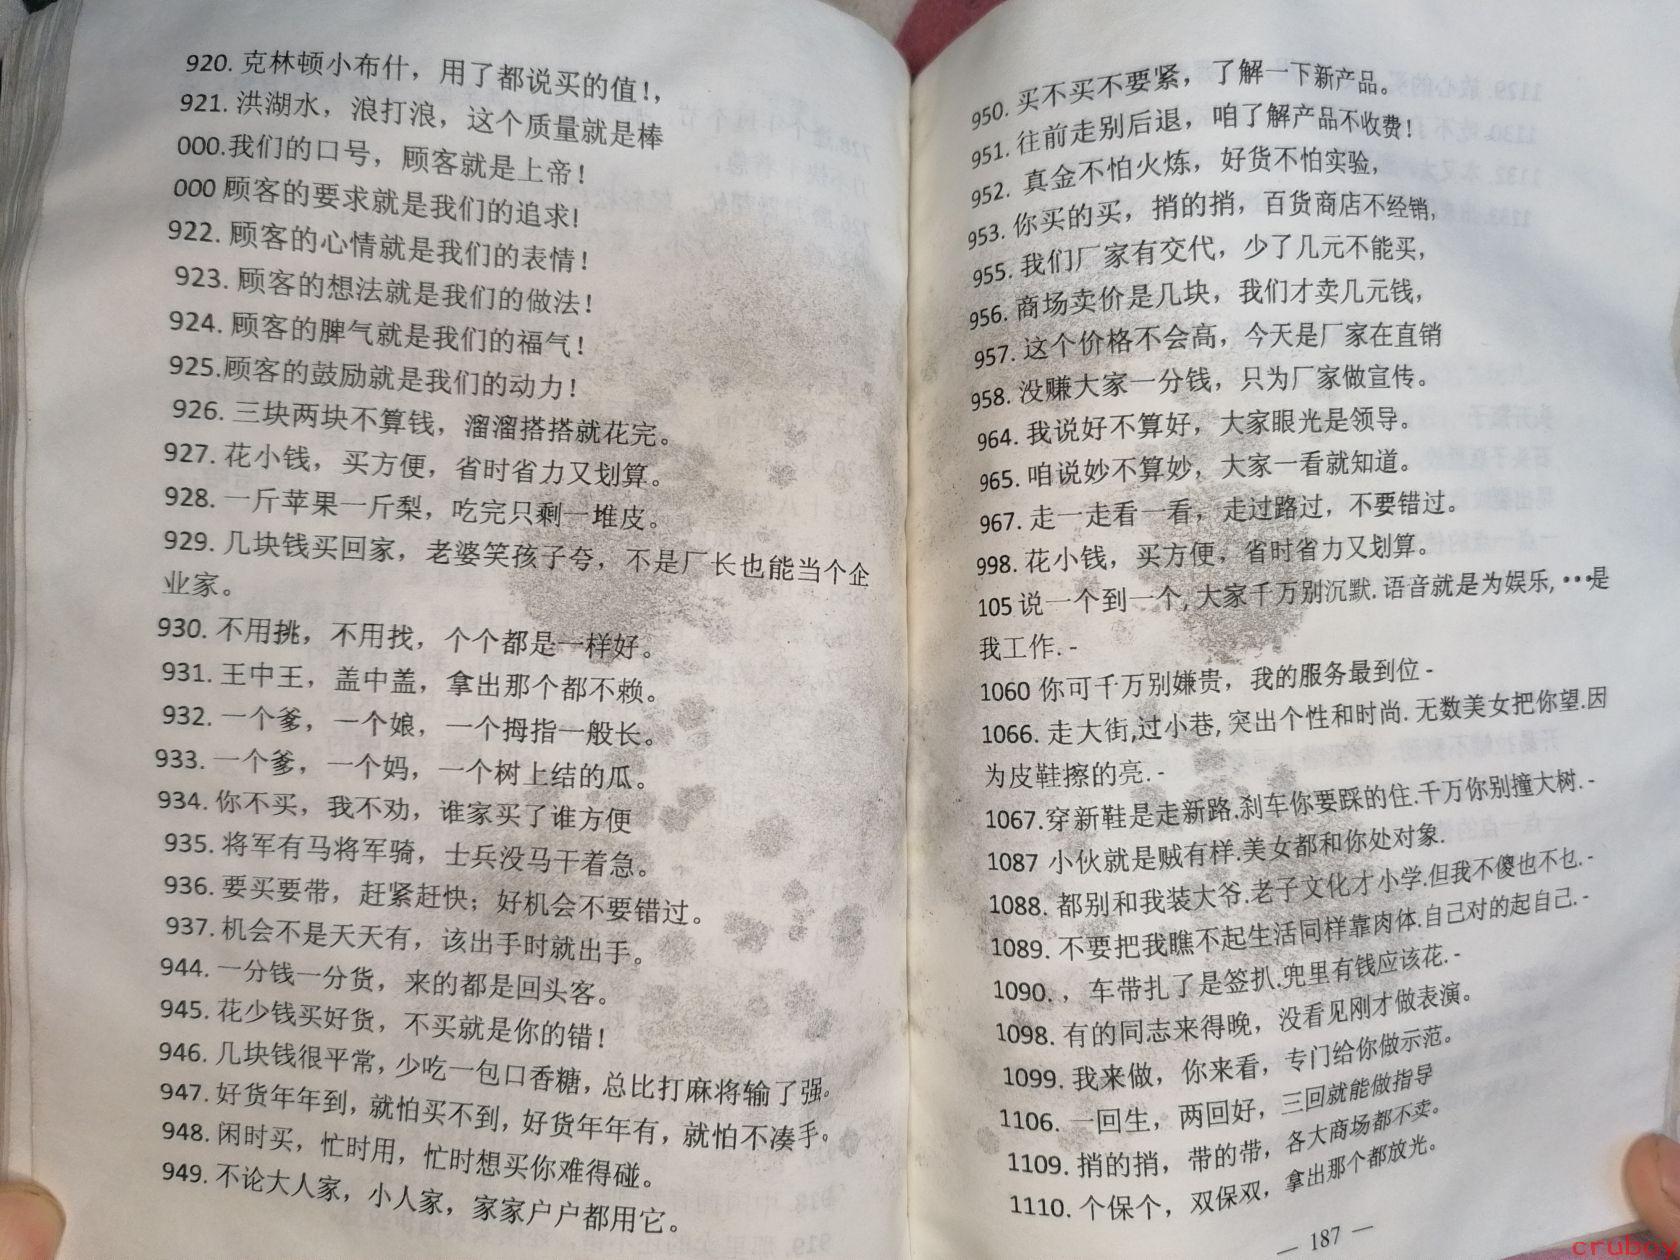 920. 克林顿小布什，用了都说买的值！，
921. 洪湖水，浪打浪，这个质量就是棒
000.我们的口号，顾客就是上帝！
000 顾客的要求就是我们的追求!
922. 顾客的心情就是我们的表情！
923. 顾客的想法就是我们的做法！
924. 顾客的脾气就是我们的福气！
925.顾客的鼓励就是我们的动力！
926. 三块两块不算钱，溜溜搭搭就花完。
927. 花小钱，买方便，省时省力又划算。
928. 一斤苹果一斤梨，吃完只剩一堆皮。
929. 几块钱买回家，老婆笑孩子夸，不是厂长也能当个企
业家。
930. 不用挑，不用找，个个都是一样好。
931. 王中王，盖中盖，拿出那个都不赖。
932. 一个爹，一个娘，一个拇指一般长。
933. 一个爹，一个妈，一个树上结的瓜。
934. 你不买，我不劝，谁家买了谁方便
935. 将军有马将军骑，士兵没马干着急。
936. 要买要带，赶紧赶快；好机会不要错过。
937. 机会不是天天有，该出手时就出手。
944. 一分钱一分货，来的都是回头客。
945. 花少钱买好货，不买就是你的错！
946. 几块钱很平常，少吃一包口香糖，总比打麻将输了强。
947. 好货年年到，就怕买不到，好货年年有，就怕不凑手。
948. 闲时买，忙时用，忙时想买你难得碰。
949. 不论大人家，小人家，家家户户都用它。
950. 买不买不要紧，了解一下新产品。
951. 往前走别后退，咱了解产品不收费！
952. 真金不怕火炼，好货不怕实验，
953. 你买的买，捎的捎，百货商店不经销，
955. 我们厂家有交代，少了几元不能买，
956. 商场卖价是几块，我们才卖几元钱，
957. 这个价格不会高，今天是厂家在直销
958. 没赚大家一分钱，只为厂家做宣传。
964. 我说好不算好，大家眼光是领导。
965. 咱说妙不算妙，大家一看就知道。
967. 走一走看一看，走过路过，不要错过。
998. 花小钱，买方便，省时省力又划算。
105 说一个到一个, 大家千万别沉默. 语音就是为娱乐, •••是
我工作. -
1060 你可千万别嫌贵，我的服务最到位 -
1066. 走大街,过小巷, 突出个性和时尚. 无数美女把你望.因
为皮鞋擦的亮. -
1067.穿新鞋是走新路.刹车你要踩的住.千万你别撞大树. -
1087 小伙就是贼有样.美女都和你处对象.
1088. 都别和我装大爷.老子文化才小学.但我不傻也不乜. -
1089. 不要把我瞧不起生活同样靠肉体.自己对的起自己. -
1090.，车带扎了是签扒.兜里有钱应该花. -
1098. 有的同志来得晚，没看见刚才做表演。
1099. 我来做，你来看，专门给你做示范。
1106. 一回生，两回好，三回就能做指导
1109. 捎的捎，带的带，各大商场都不卖。
1110. 个保个，双保双，拿出那个都放光。
— 187 —
cruboy